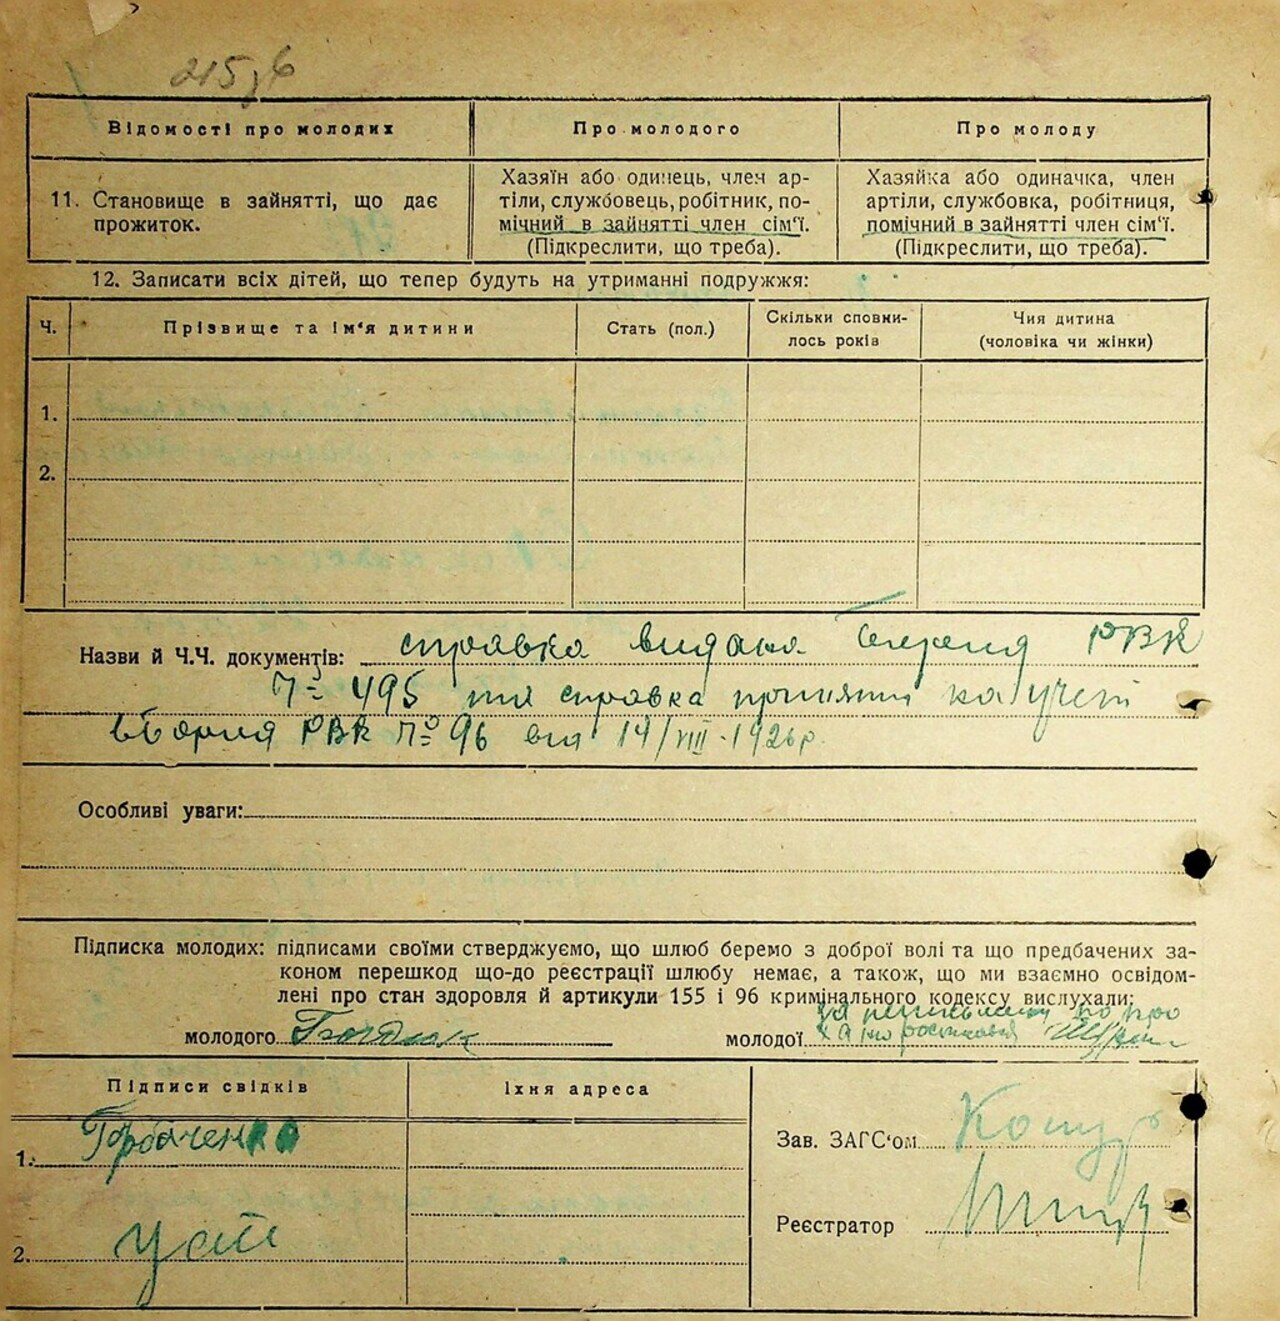 215
Відомості про молодих
Про молодого
Про молоду
11. Становище в зайнятті, що дає
прожиток.
Хазяїн або одинець, член ар-
тіли, службовець, робітник, по-
мічний в зайнятті член сім'ї.
(Підкреслити, що треба).
Хазяйка або одиначка, член
артіли, службовка, робітниця,
помічний в зайнятті член сім'ї.
(Підкреслити, що треба).
12. Записати всіх дітей, що тепер будуть на утриманні подружжя:
Ч.
Прізвище та ім'я дитини
Стать (пол.)
Скільки сповни-
лось років
Чия дитина
(чоловіка чи жінки)
1.
2.
Назви й Ч.Ч. документів: справка видана РВК
№ 495 та справка
РВК № 96 від 14/VIII-1926р.
Особливі уваги:
Підписка молодих: підписами своїми стверджуємо, що шлюб беремо з доброї волі та що предбачених за-
коном перешкод що-до реєстрації шлюбу немає, а також, що ми взаємно освідом-
лені про стан здоровля й артикули 155 і 96 кримінального кодексу вислухали:
молодого
молодої
Підписи свідків
Їхня адреса
1. Горбаченко
2.
Зав. ЗАГС'ом
Реєстратор